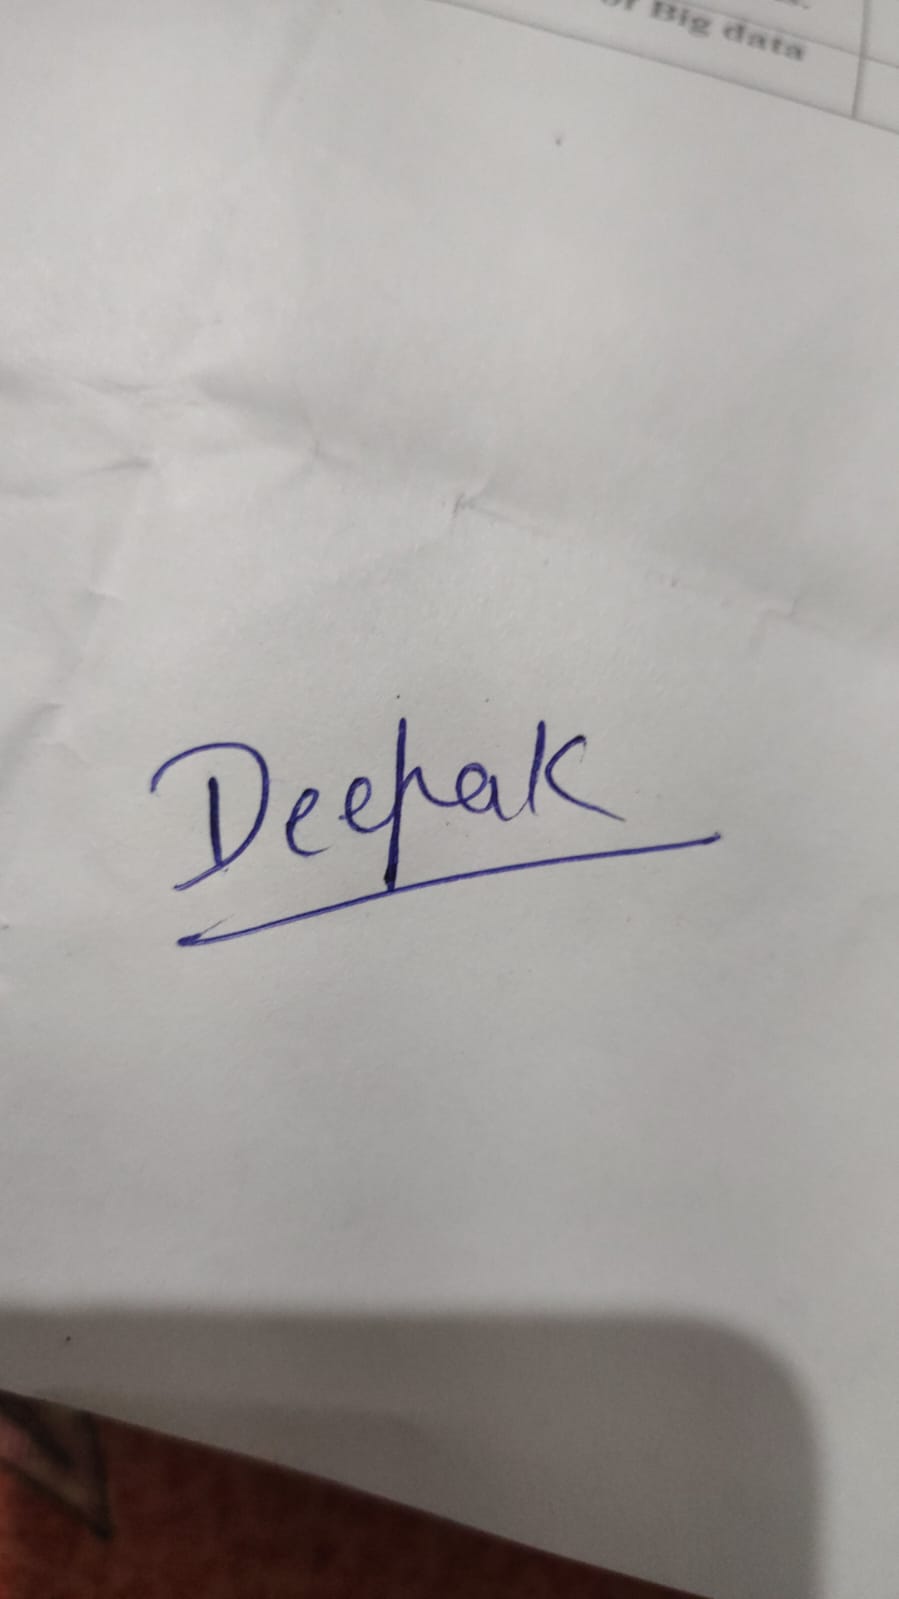 of Big data
Deepak